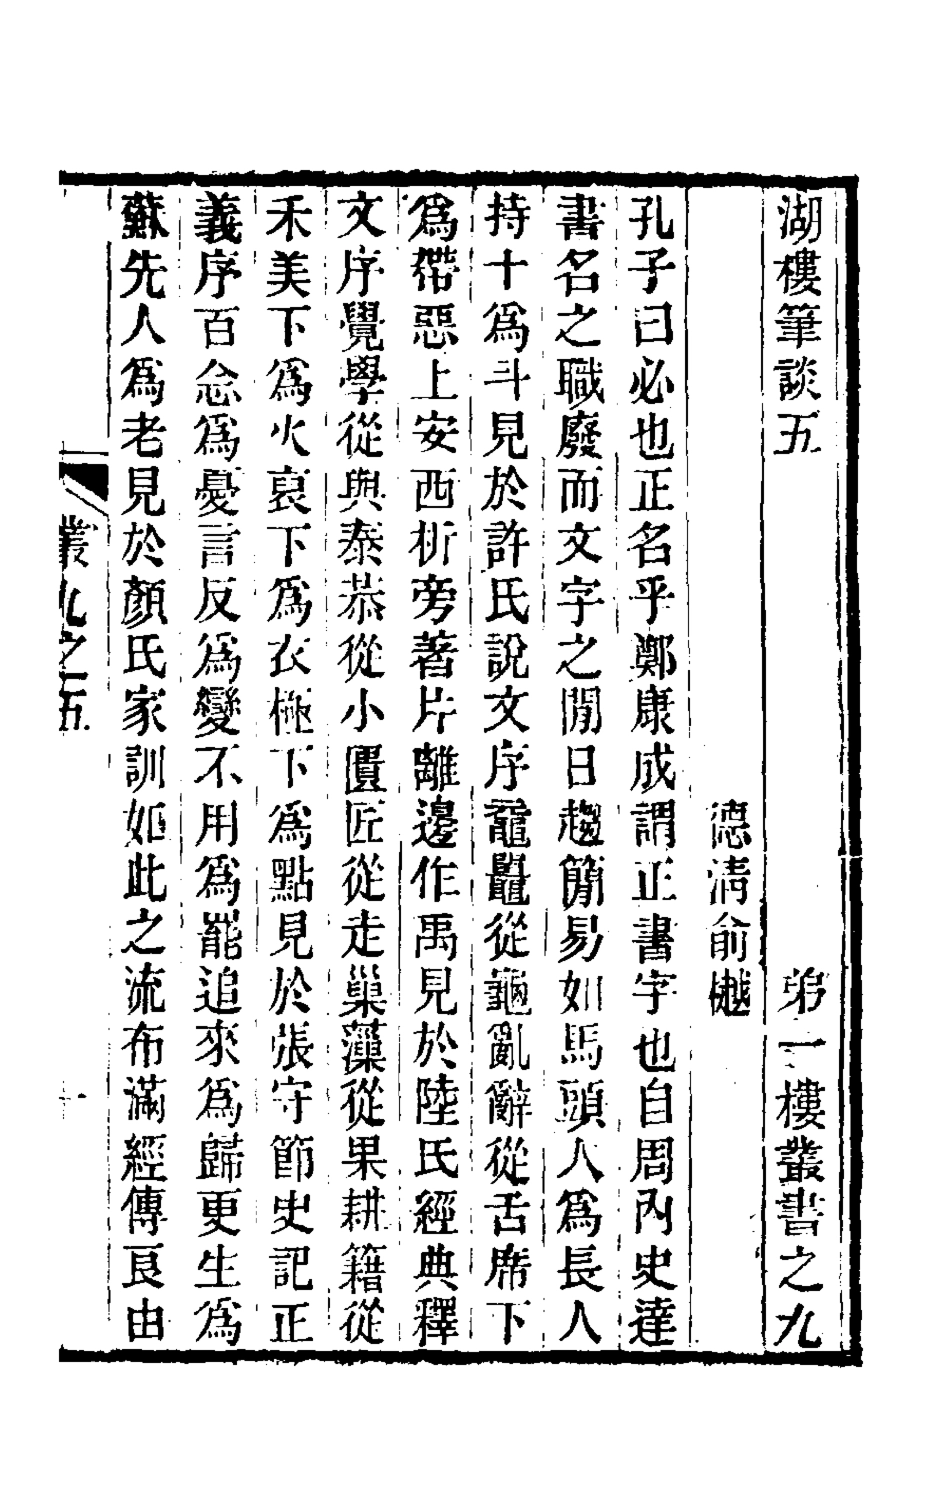 湖樓筆談五　第一樓叢書之九
德清俞樾
孔子曰必也正名乎鄭康成謂正書字也自周內史達
書名之職廢而文字之閒日趨簡易如馬頭人為長人
持十為斗見於許氏說文序鼀鼂從龜亂辭從舌席下
為帶惡上安西析旁著片離邊作禹見於陸氏經典釋
文序覺學從與泰恭從小匱匠從走巢藻從果耕籍從
禾美下為火裒下為衣極下為點見於張守節史記正
義序百念為憂言反為變不用為罷追來為歸更生為
蘇先人為老見於顏氏家訓如此之流布滿經傳良由
叢九之五